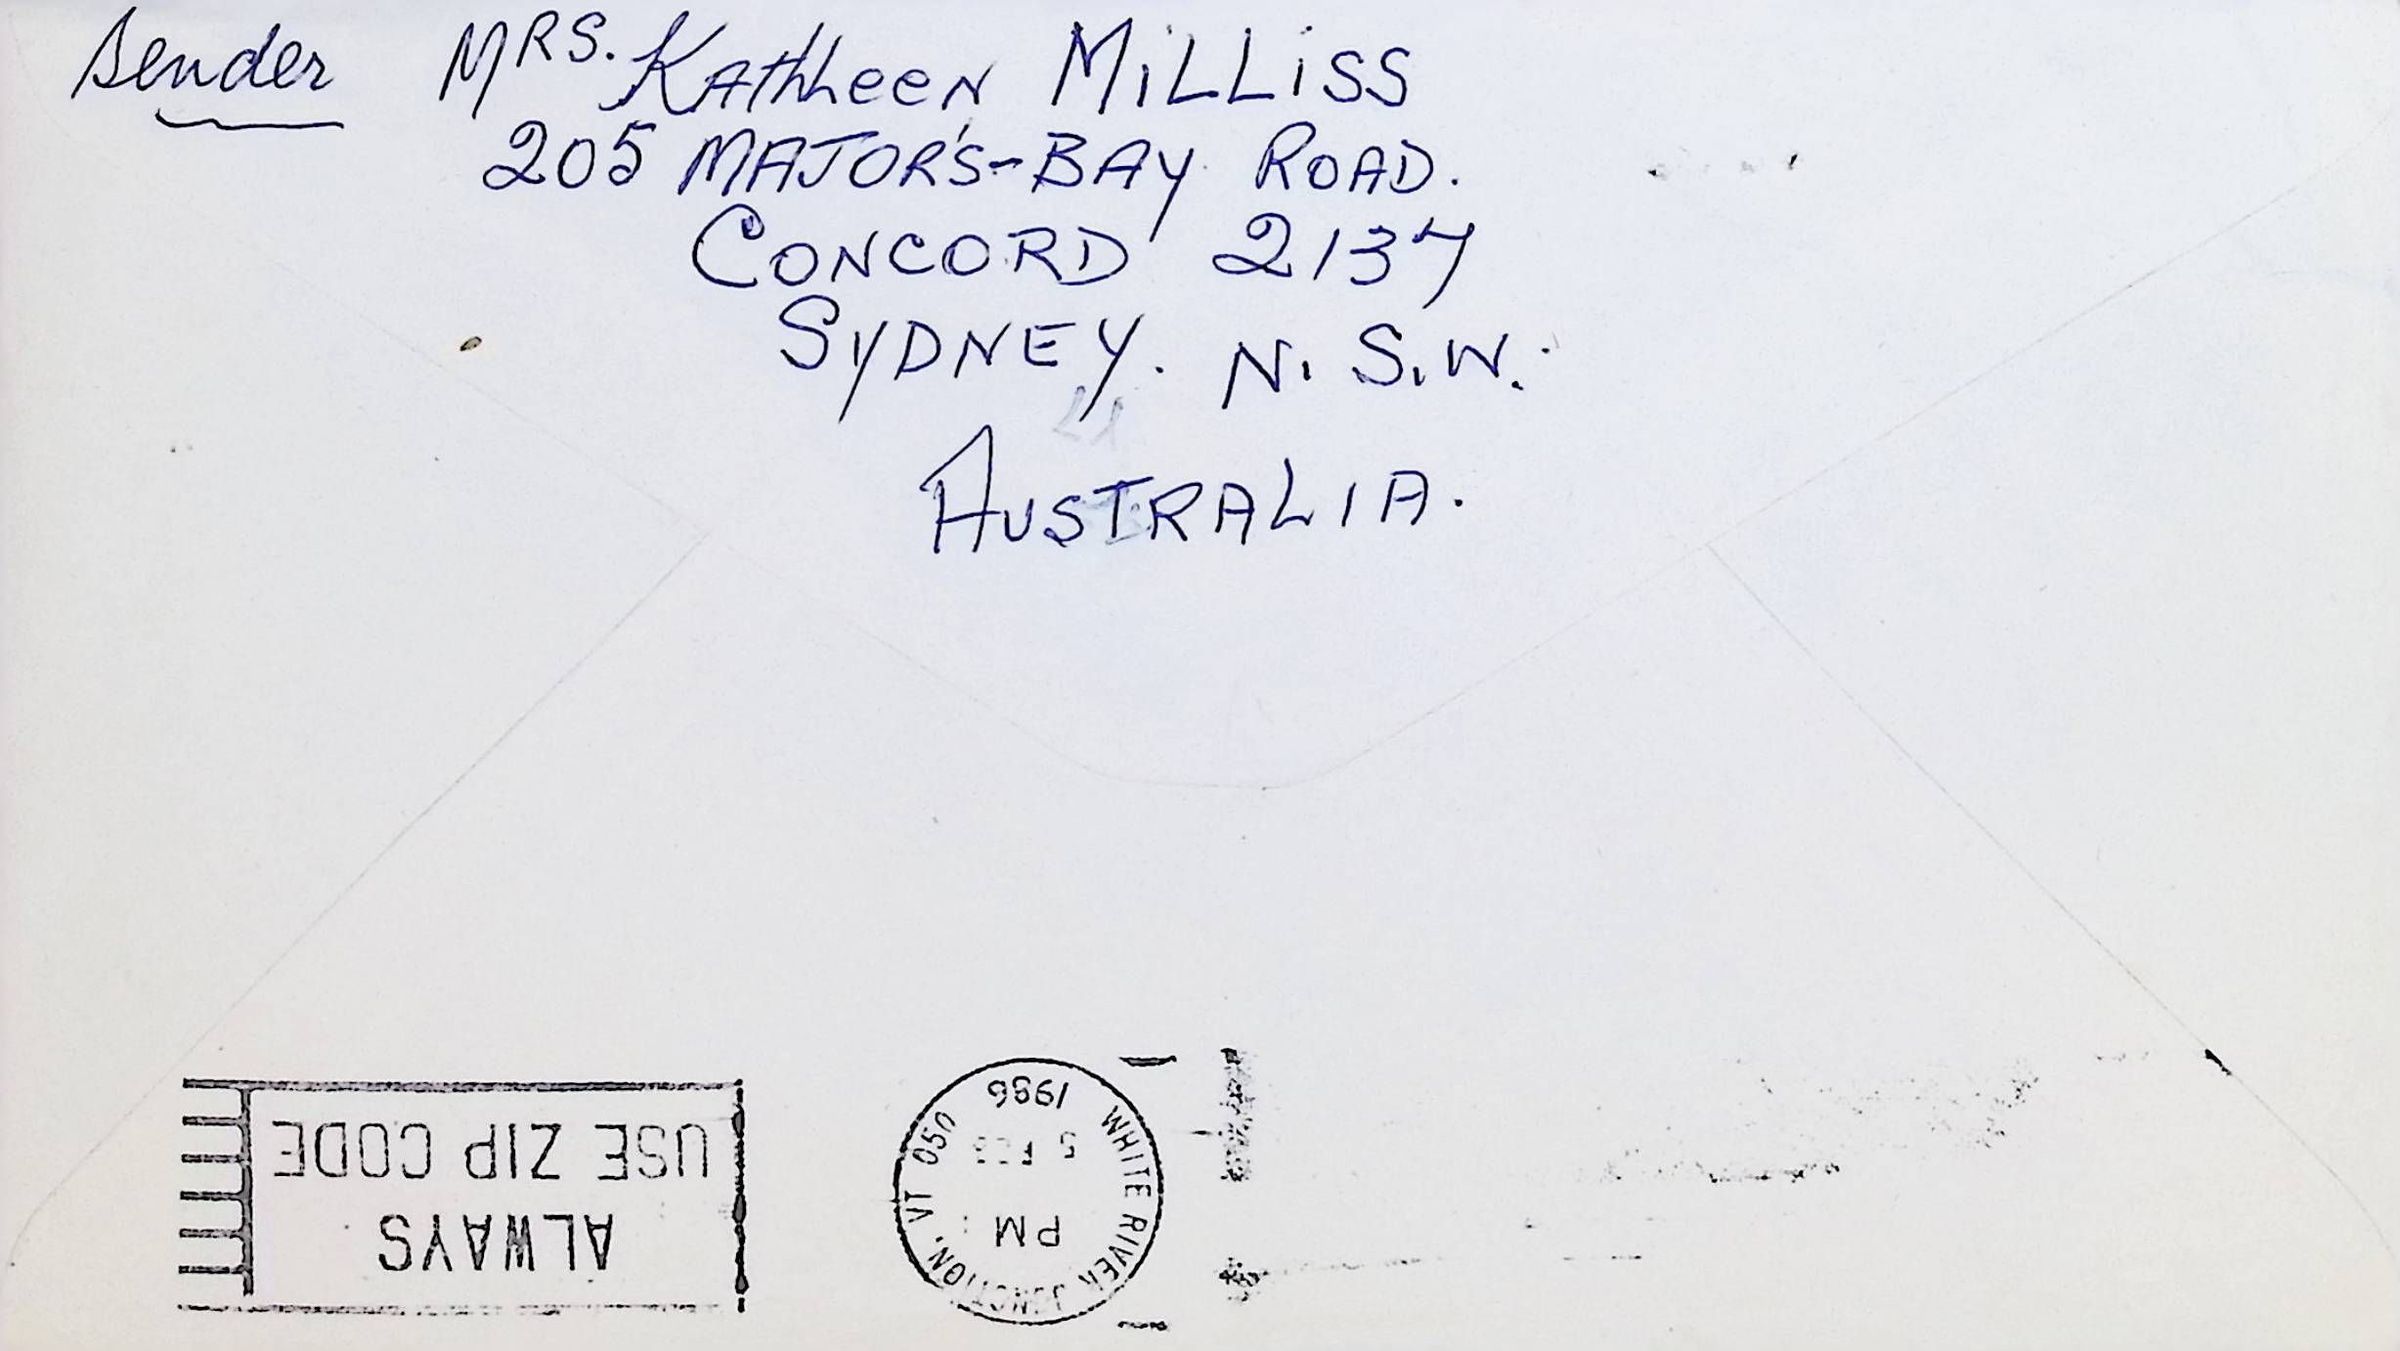 Sender MRS. Kathleen MiLLiSS
205 MAJOR'S-BAY ROAD.
CONCORD 2137
SYDNEY. N.S.W.
AUSTRALIA.
ALWAYS
USE ZIP CODE
WHITE RIVER JUNCTION, VT 050
PM
5 FEB
1986